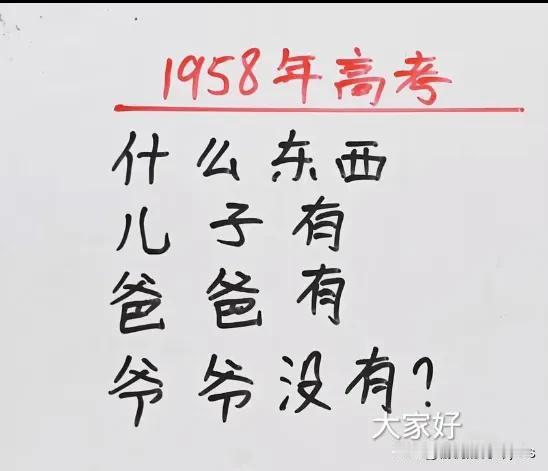 1958年高考
什么东西
儿子有
爸爸有
爷爷没有?
大家好